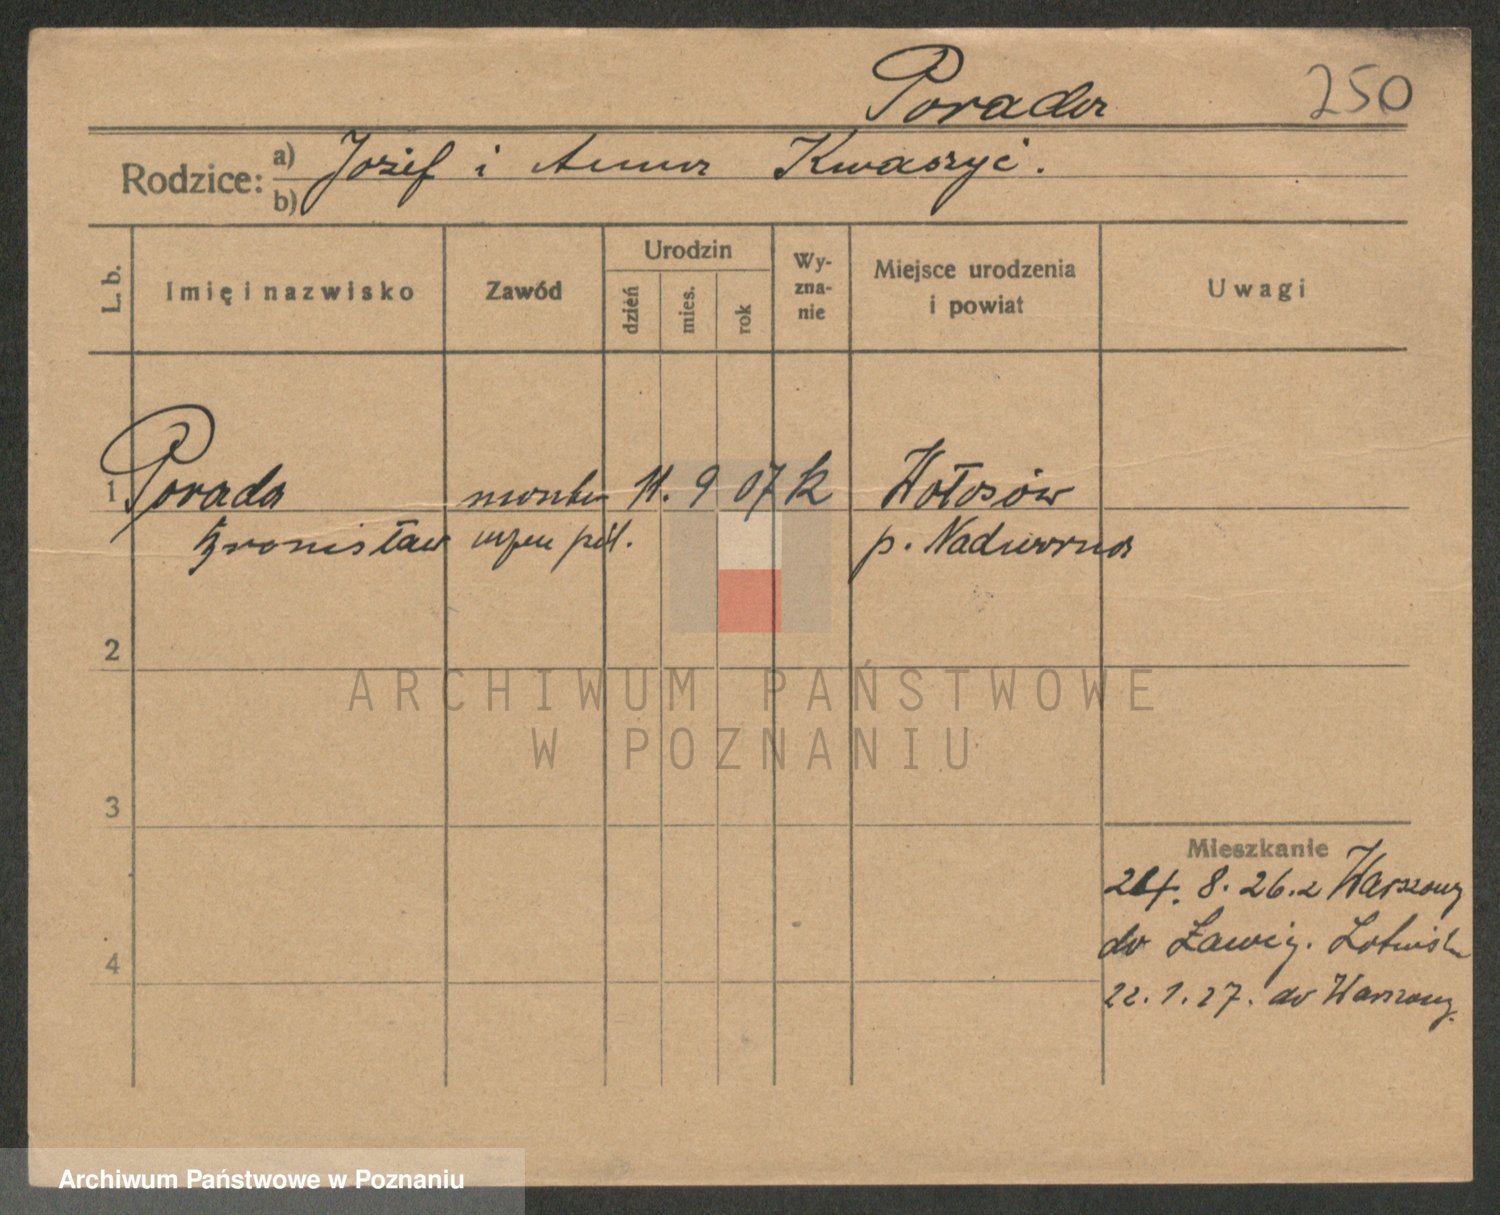 Porada 250
Rodzice: a) Józef i Anna Kwaszyć.
b)
L. b. Imię i nazwisko Zawód Urodzin dzień mies. rok Wyznanie Miejsce urodzenia i powiat Uwagi
1 Porada monter 11. 9 07 k Wołosów
Bronisław p. Nadworna
2
ARCHIWUM PAŃSTWOWE
W POZNANIU
3
Mieszkanie
24. 8. 26. z Warszawy
do Ławicy. Lotnisko
4
22. 1. 27. do Warszawy.
Archiwum Państwowe w Poznaniu